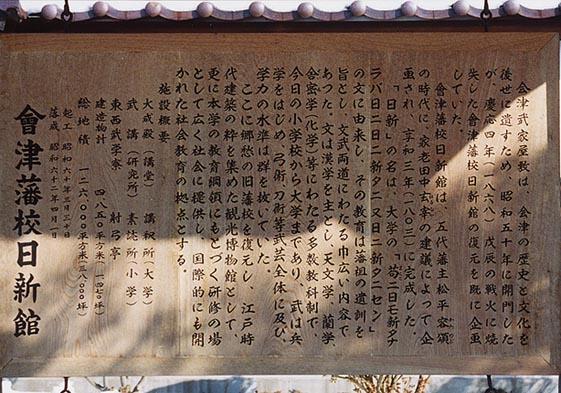 會津武家屋敷は、会津の歴史と文化を
後世に遺すため、昭和五十年に開門した
が、慶応四年（一八六八）戊辰の戦火に焼
失した會津藩校日新館の復元を既に企画
していた。
會津藩校日新館は、五代藩主松平容頌
の時代に、家老田中玄宰の建議によって企
画され、享和三年（一八〇三）に完成した。
「日新」の名は、大学の「苟ニ日モ新タナ
ラバ日ニ日ニ新タニ又日ニ新タニセン」
の文に由来し、その教育は藩祖の遺訓を
旨とし、文武両道にわたる巾広い内容で
あった。文は漢学を主とし、天文学、蘭学、
舎密学（化学）等にわたる多数教科制で、
今日の小学校から大学まであり、武は兵
学をはじめ、弓術、刀術等武芸全体に及び、
学力の水準は群を抜いていた。
ここに郷愁の旧藩校を復元し、江戸時
代建築の粋を集めた観光博物館として、
更に本学の教育綱領にもとづく研修の場
として広く社会に提供し、国際的にも開
かれた社会教育の拠点とする。
施設概要
大成殿（講堂） 講釈所（大学）
武講（研究所） 素読所（小学）
東西武学寮 射弓亭
建造物計 四八五〇平方米
総地積 一二六〇〇〇平方米（三八〇〇〇坪）
起工 昭和六十年三月三十日
落成 昭和六十二年四月一日
會津藩校日新館